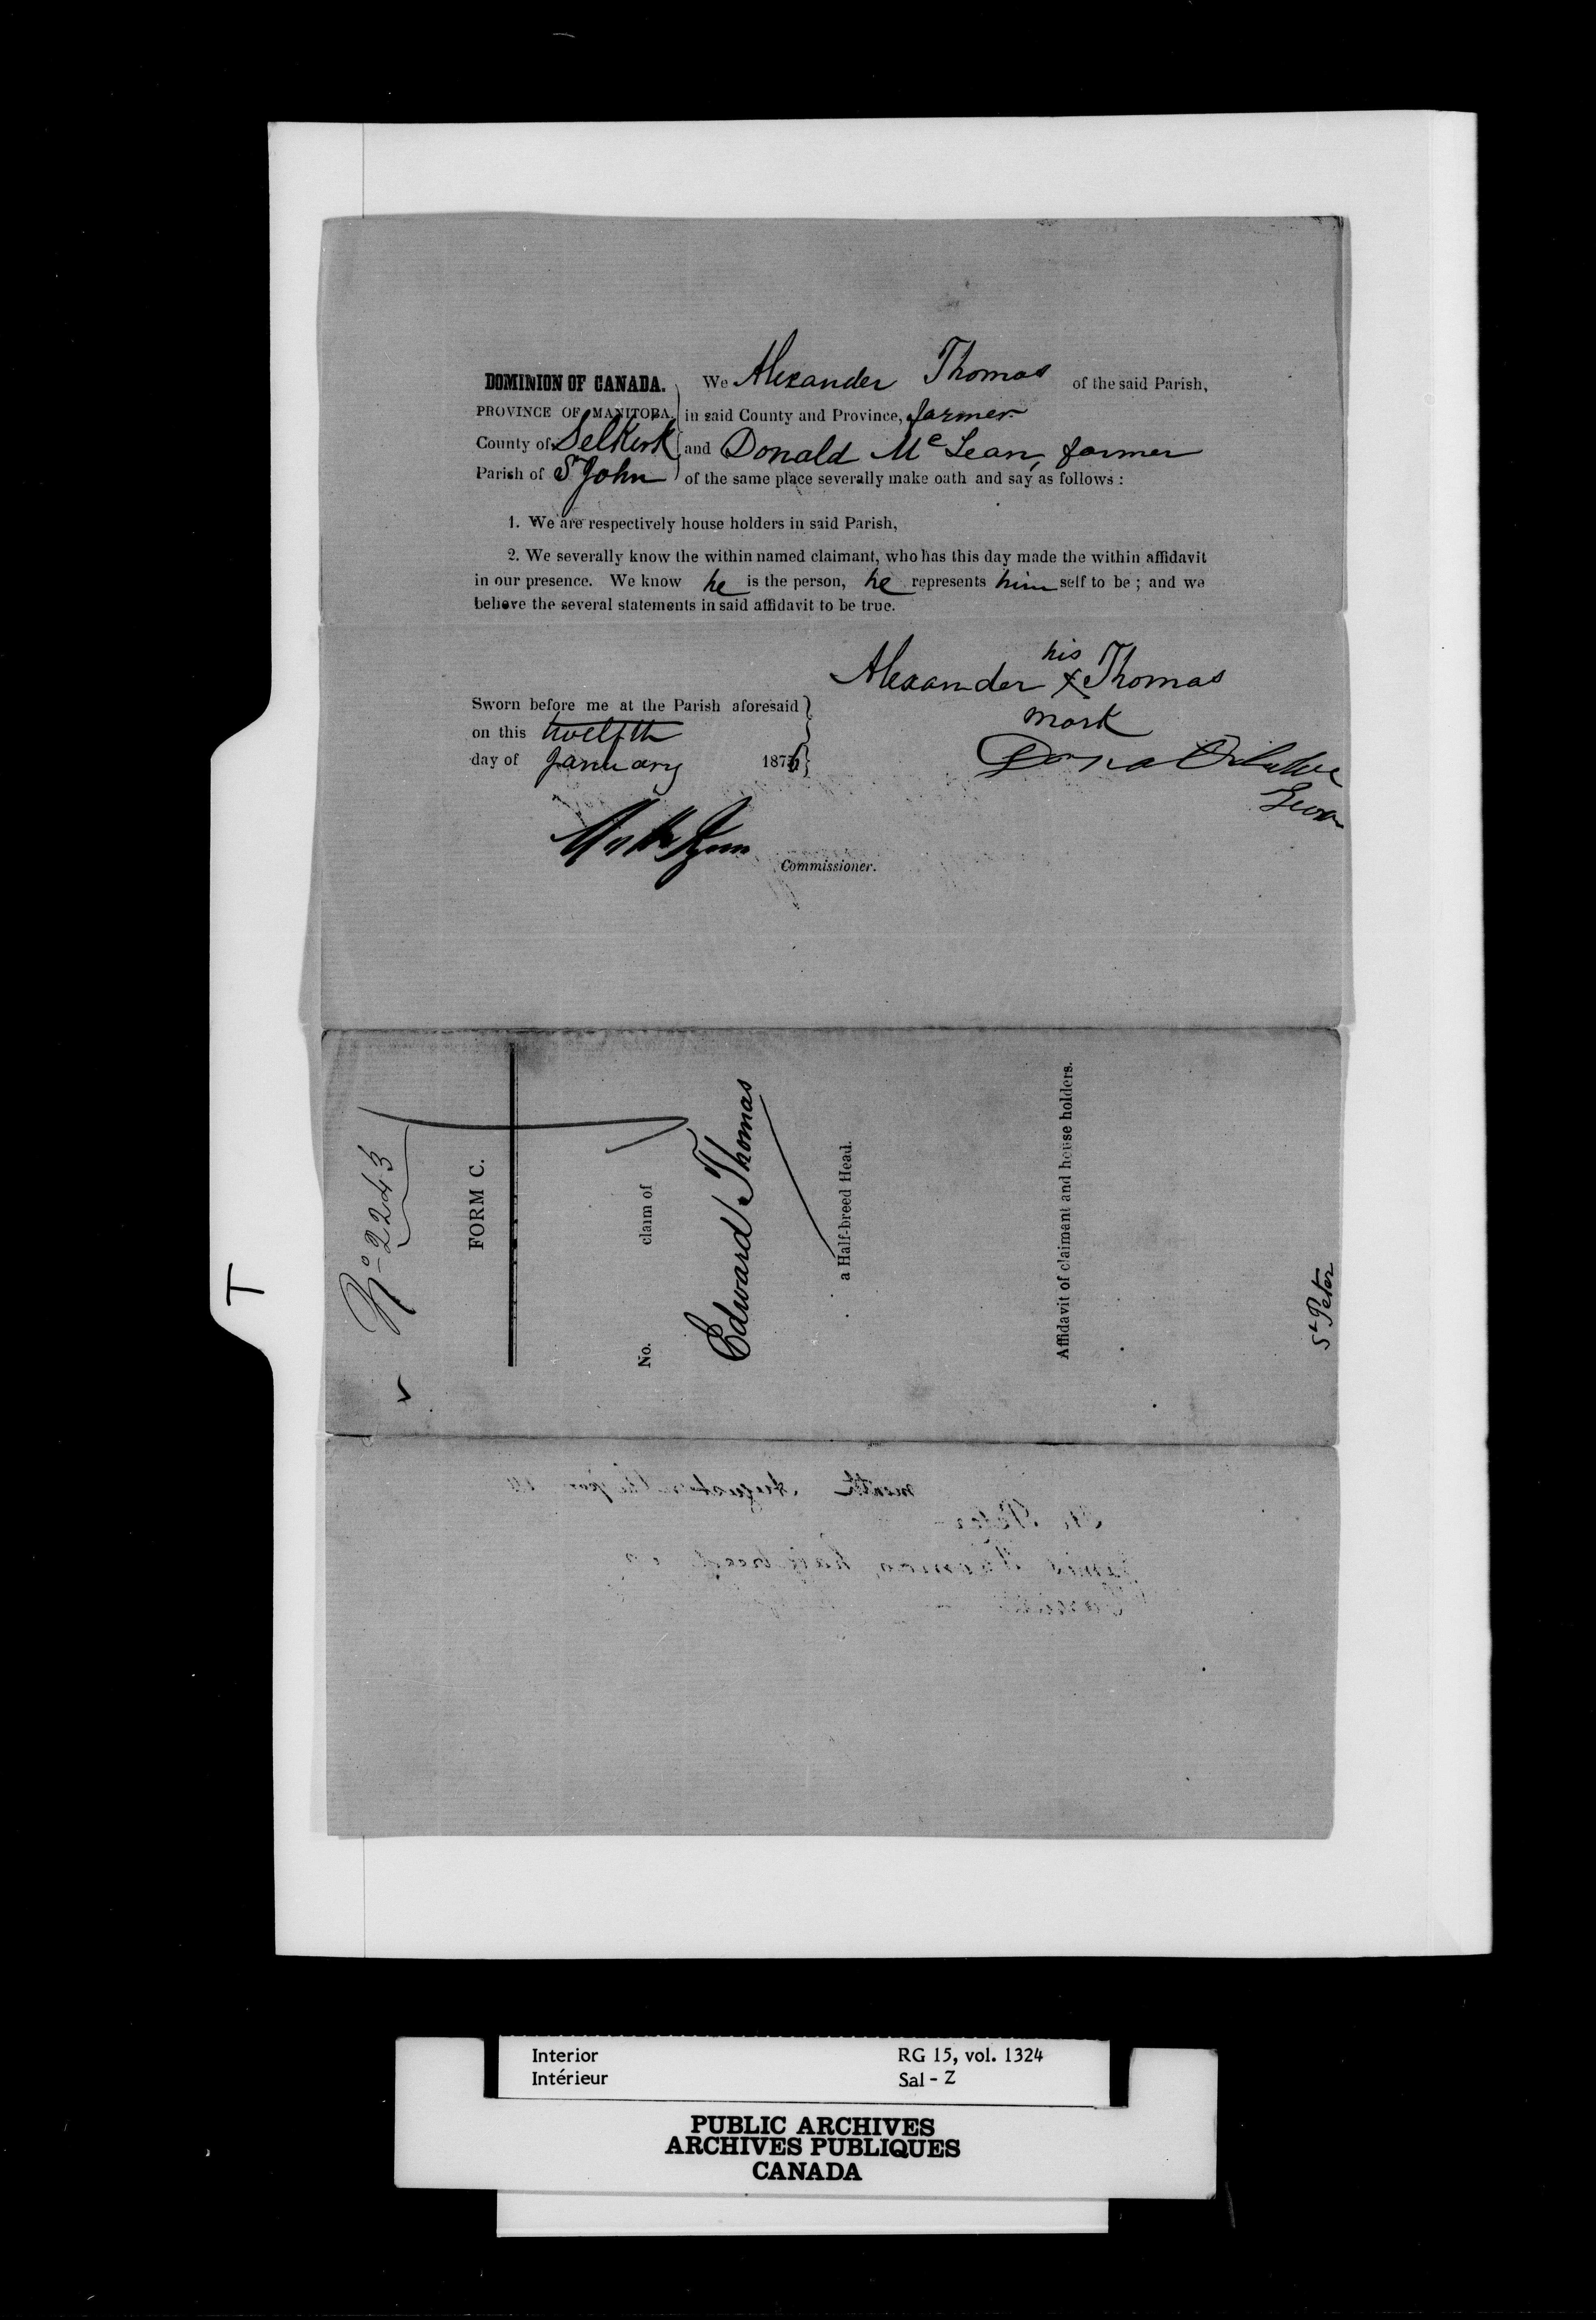 DOMINION OF CANADA. We Alexander Thomas of the said Parish,
PROVINCE OF MANITOBA. in said County and Province, farmer
County of Selkirk and Donald Mc Lean, farmer
Parish of St John of the same place severally make oath and say as follows :
1. We are respectively house holders in said Parish,
2. We severally know the within named claimant, who has this day made the within affidavit
in our presence. We know he is the person, he represents him self to be ; and we
believe the several statements in said affidavit to be true.
his
Alexander X Thomas
mark
Sworn before me at the Parish aforesaid
on this twelfth
day of January 1876
Commissioner.
No 2243
FORM C.
No. claim of
Edward Thomas
a Half-breed Head.
Affidavit of claimant and house holders.
St Peter
T
Interior RG 15, vol. 1324
Intérieur Sal - Z
PUBLIC ARCHIVES
ARCHIVES PUBLIQUES
CANADA